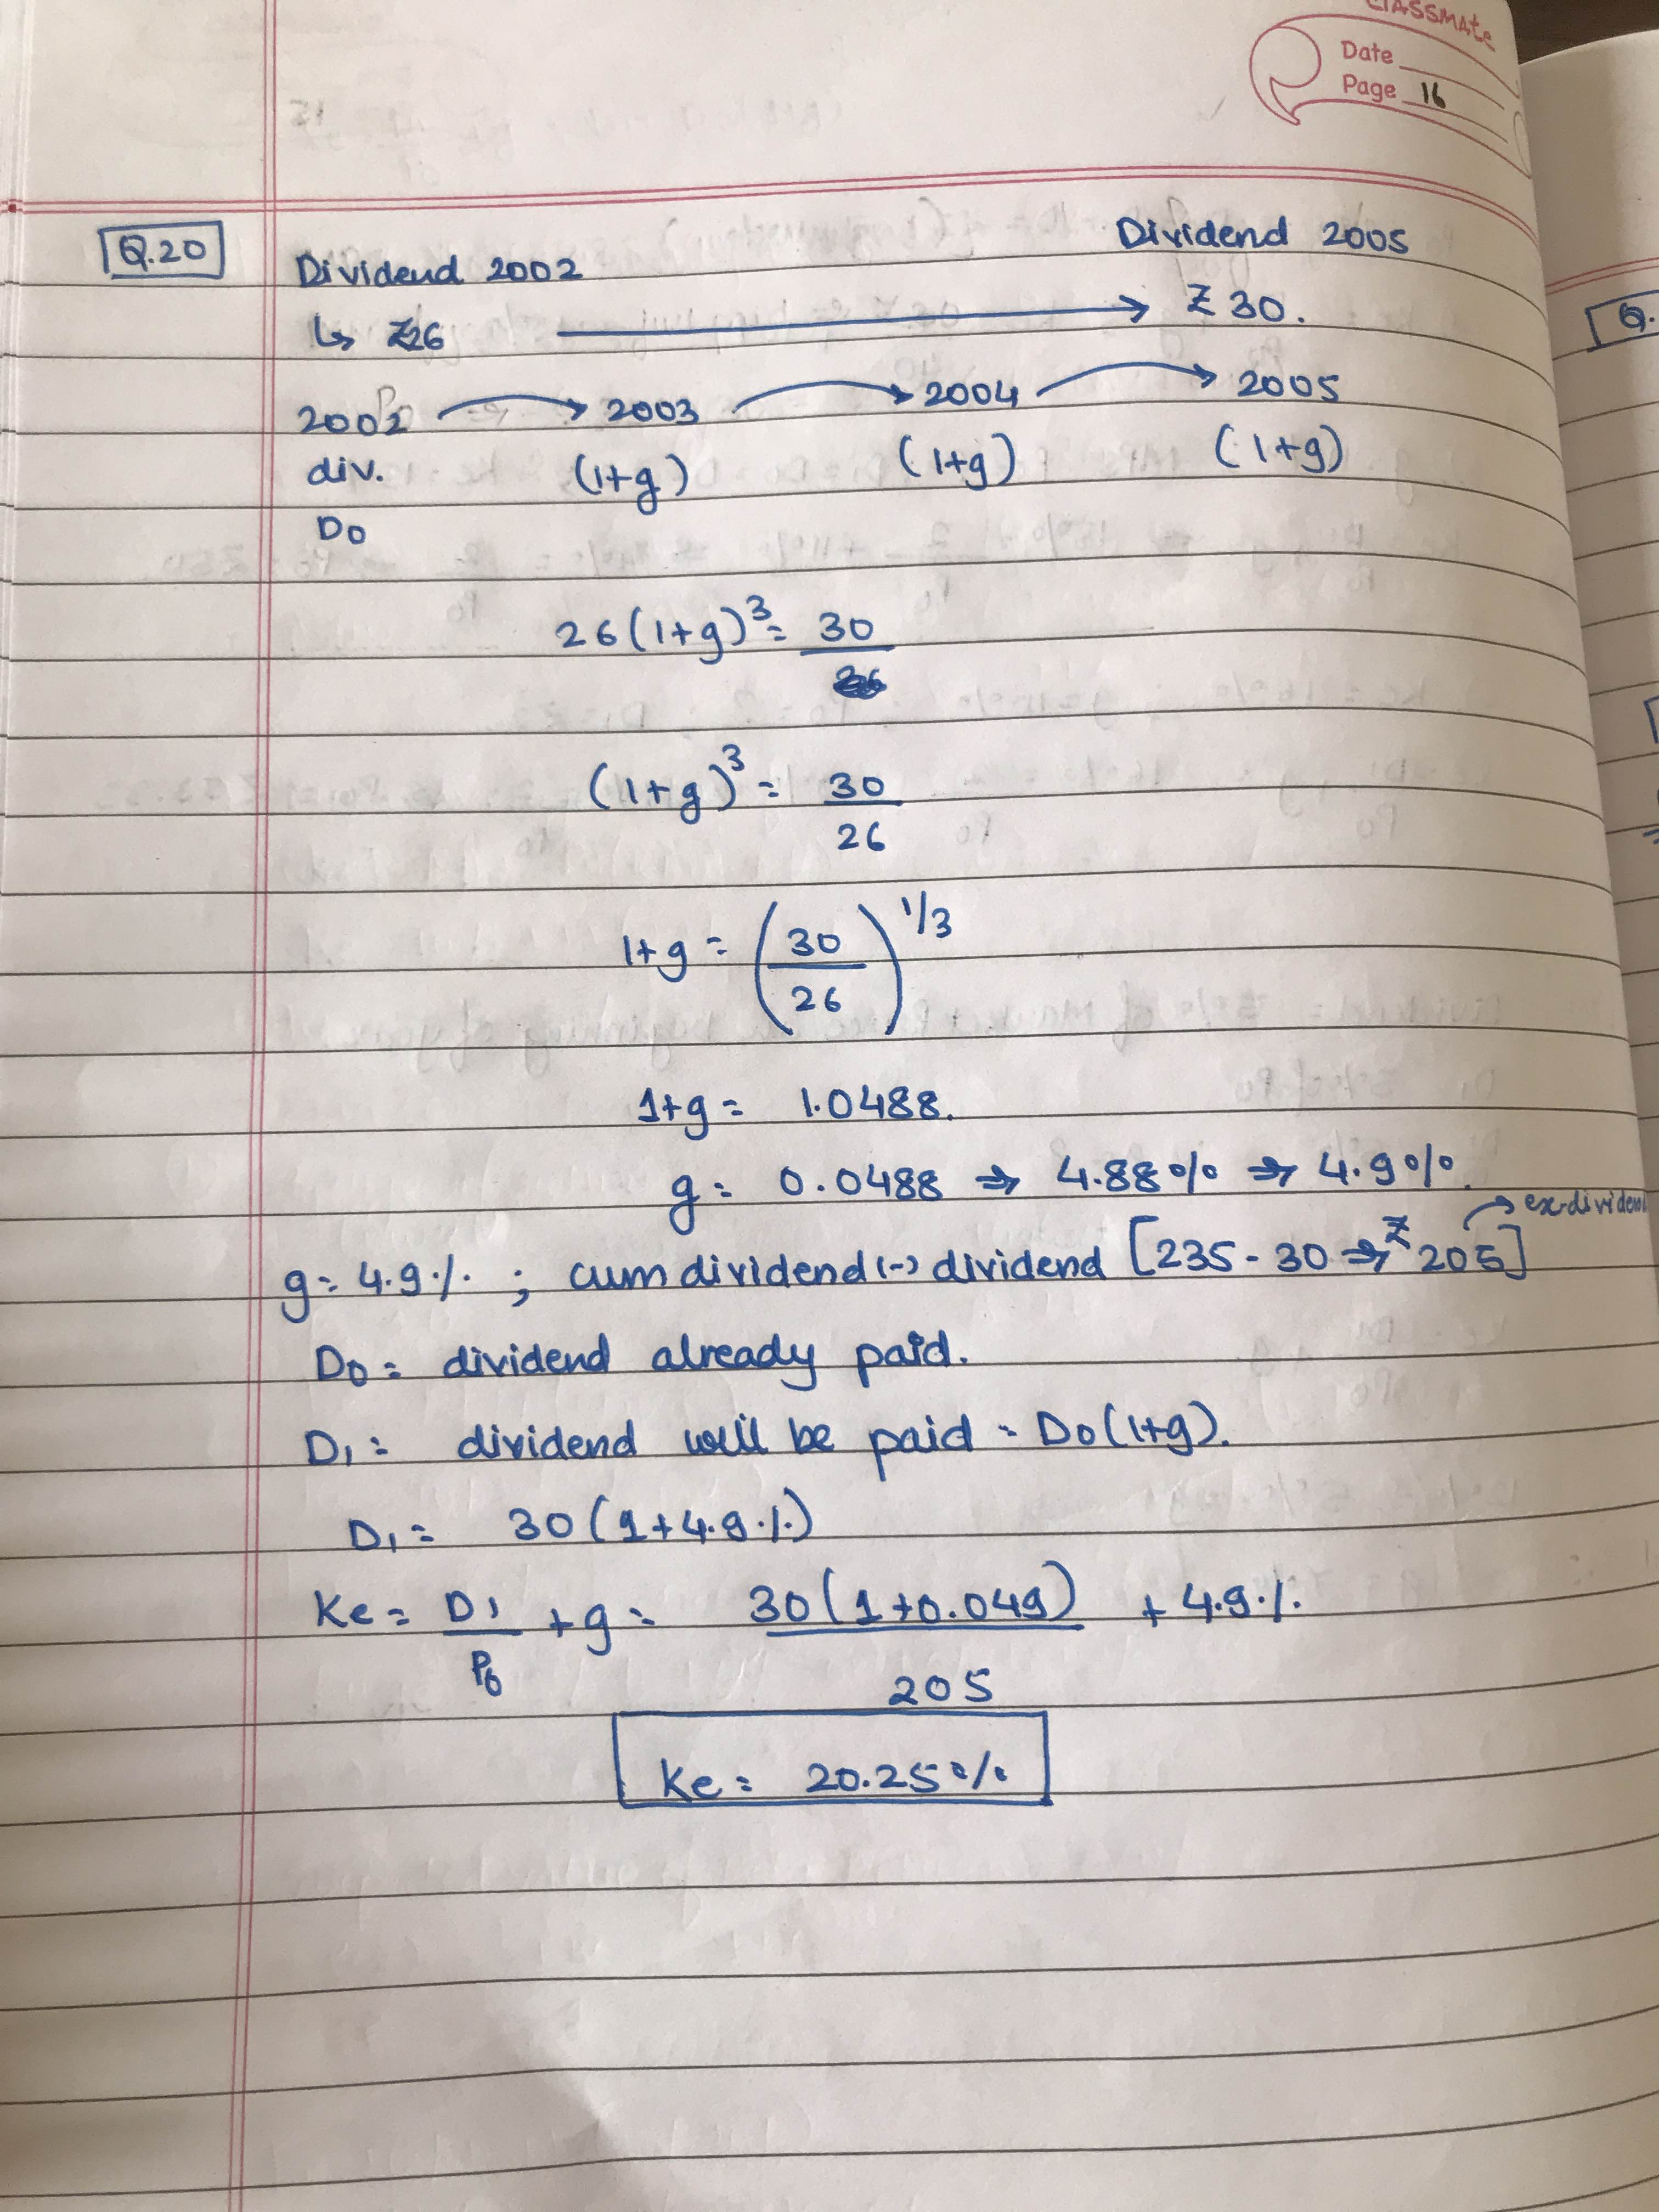 classmate
Date
Page 16
Q.20
Dividend 2002 Dividend 2005
↳ ₹26 → ₹30.
2002 → 2003 → 2004 → 2005
div. (1+g) (1+g) (1+g)
D0
26(1+g)^3 = 30
(1+g)^3 = 30/26
1+g = (30/26)^1/3
1+g = 1.0488.
g = 0.0488 ⇒ 4.88% ⇒ 4.9%.
g = 4.9% ; cum dividend (-) dividend [235-30 ⇒ ₹205] → ex-dividend
D0 = dividend already paid.
D1 = dividend will be paid = D0(1+g).
D1 = 30(1+4.9%)
Ke = D1/P0 + g = 30(1+0.049)/205 + 4.9%
Ke = 20.25%
Q.